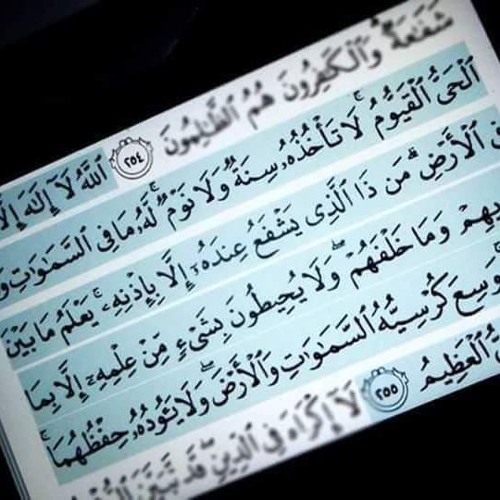 شَفَٰعَةٌ وَٱلْكَٰفِرُونَ هُمُ ٱلظَّٰلِمُونَ ٢٥٤ ٱللَّهُ لَآ إِلَٰهَ إِلَّا
ٱلْحَىُّ ٱلْقَيُّومُ ۚ لَا تَأْخُذُهُۥ سِنَةٌ وَلَا نَوْمٌ ۚ لَّهُۥ مَا فِى ٱلسَّمَٰوَٰتِ وَ
ٱلْأَرْضِ ۗ مَن ذَا ٱلَّذِى يَشْفَعُ عِندَهُۥٓ إِلَّا بِإِذْنِهِۦ ۚ يَعْلَمُ مَا بَيْنَ
يهِمْ وَمَا خَلْفَهُمْ ۖ وَلَا يُحِيطُونَ بِشَىْءٍ مِّنْ عِلْمِهِۦٓ إِلَّا بِمَا
وَسِعَ كُرْسِيُّهُ ٱلسَّمَٰوَٰتِ وَٱلْأَرْضَ ۖ وَلَا يَـُٔودُهُۥ حِفْظُهُمَا ۚ
ٱلْعَظِيمُ ٢٥٥ لَآ إِكْرَاهَ فِى ٱلدِّينِ ۖ قَد تَّبَيَّنَ